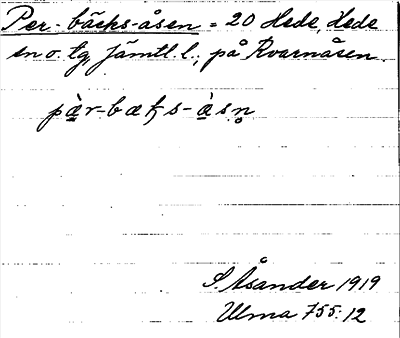 Per-bäcks-åsen = 20 Hede, Hede
sn o. tg, Jämtl. l.; på Kvarnåsen.
pà̱r-bæƫs-à̱sn̥
S. Åsander 1919
Ulma 755:12